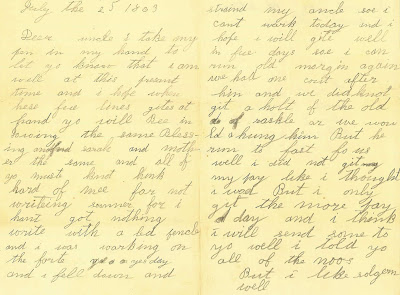 July the 25 1863
Dear uncle I take my
pen in my hand to
let yo know that i am
well at this present
time and i hope when
these few lines gites at
hand yo will Bee in
the same Bless
ing and sarah and moth
er the same and all of
yo must kind
hard of mee for not
writeing sunner for i
hant got nothing
write with a bd uncle
and i was working on
the forte yesterday
and i fell down and
straind my ancle soe i
cant work today and i
hope i will gete well
in five days soe i can
run old morgin again
wee had one cost after
him and we did knot
git a holt of the old
raskle ar we wou
ld a hung him But he
run to fast fo us
well i did not git
my pay like i thought
i wod But i only
git the more Pay
day and i think
i will send some to
yo well i told yo
all of the noos
But i like edgern
well